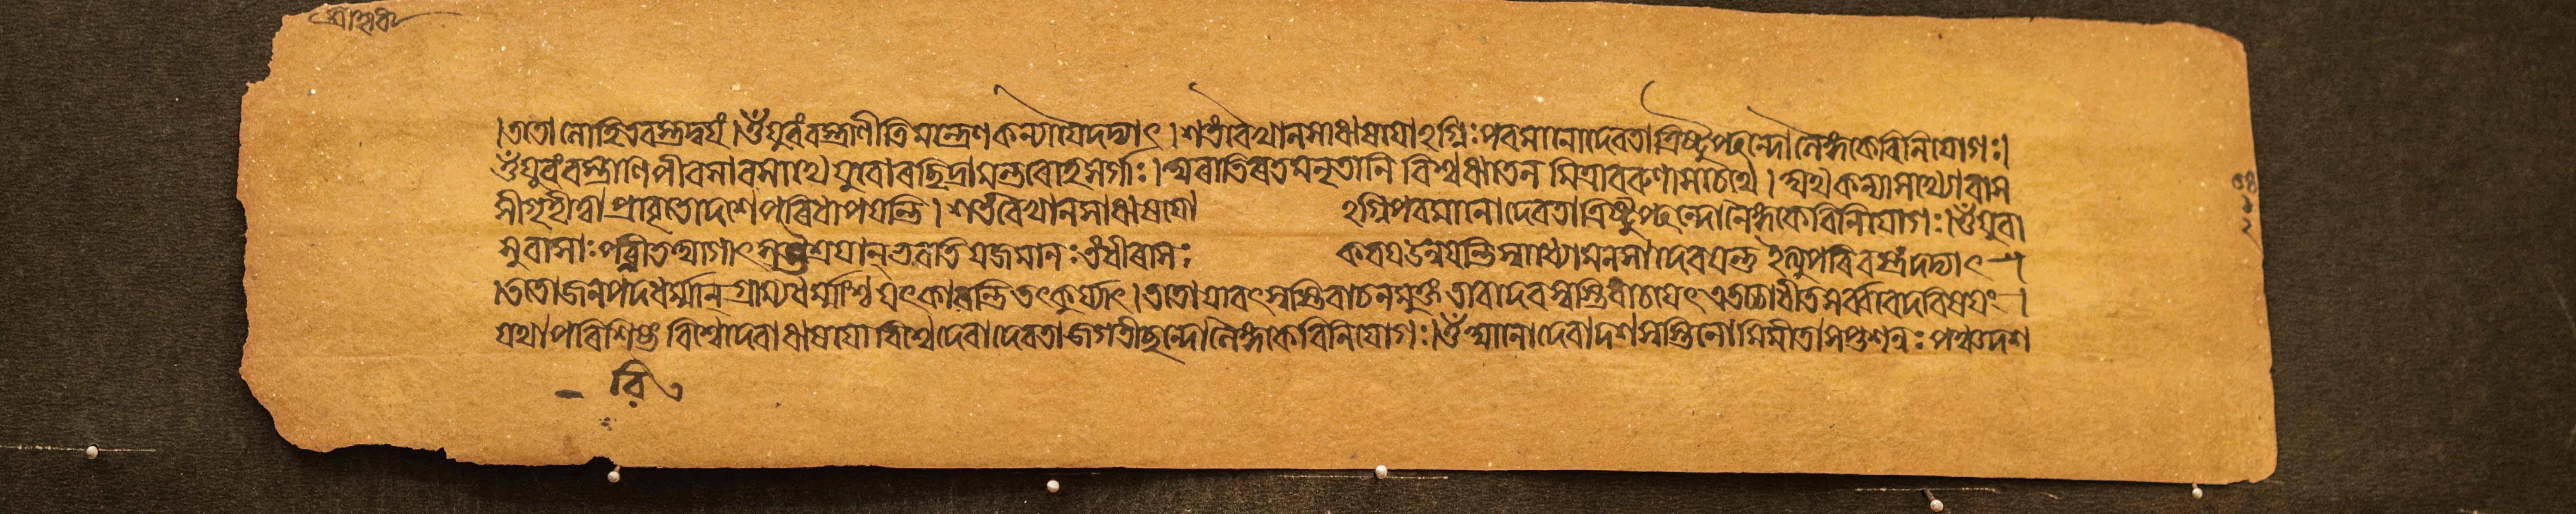 ।ততো লোহিতবস্ত্রদ্বয়ং।ওঁযুবংবস্ত্রাণীতিমন্ত্রেণকন্যায়ৈদদ্যাৎ।শতংবৈখানসাঋষয়োঽগ্নিঃপবমানোদেবতাত্রিষ্টুপ্ছন্দোনৈষ্ঠকেবিনিয়োগঃ।
ওঁযুবংবস্ত্রাণিপীবসাবসাথেযুবোরচ্ছিদ্রামন্তবোহসর্গাঃ।অবাতিরতমনৃতানি বিশ্বঋতেন মিত্রাবরুণাসচেথে।অথকন্যামাথ্যবাস
সীগৃহীত্বা প্রাবৃতোদশেপরিধাপয়ন্তি।শতংবৈখানসাঋষয়ো ঽগ্নিপবমানোদেবতাত্রিষ্টুপ্ছন্দোনৈষ্ঠকেবিনিয়োগঃ।ওঁযুবা
সুবাসাঃপরিবীতআগাৎসউশ্রেয়ান্ভবতিযজমানঃতংধীরাসঃ কবয়উন্নয়ন্তিস্বাধ্যোমনসাদেবয়ন্ত ঽলুপরিবস্ত্রংদদ্যাৎ।
।ততোজনপদধর্ম্মান্গ্রাম্যধর্ম্মাংশ্চ যৎকারন্তিতৎকুর্য্যাৎ।ততোযাবৎস্বস্তিবাচনমুক্তং তাবদেবস্বস্তিবাচয়েৎ
যথাপরিশিষ্টং বিশ্বেদেবাঋষয়ো বিশ্বেদেবাদেবতাজগতীছন্দোনৈষ্ঠকেবিনিয়োগঃ।ওঁআনোদেবাদশস্বস্তিনোমিমীতাসপ্তশন্নঃপঞ্চদশ
রি